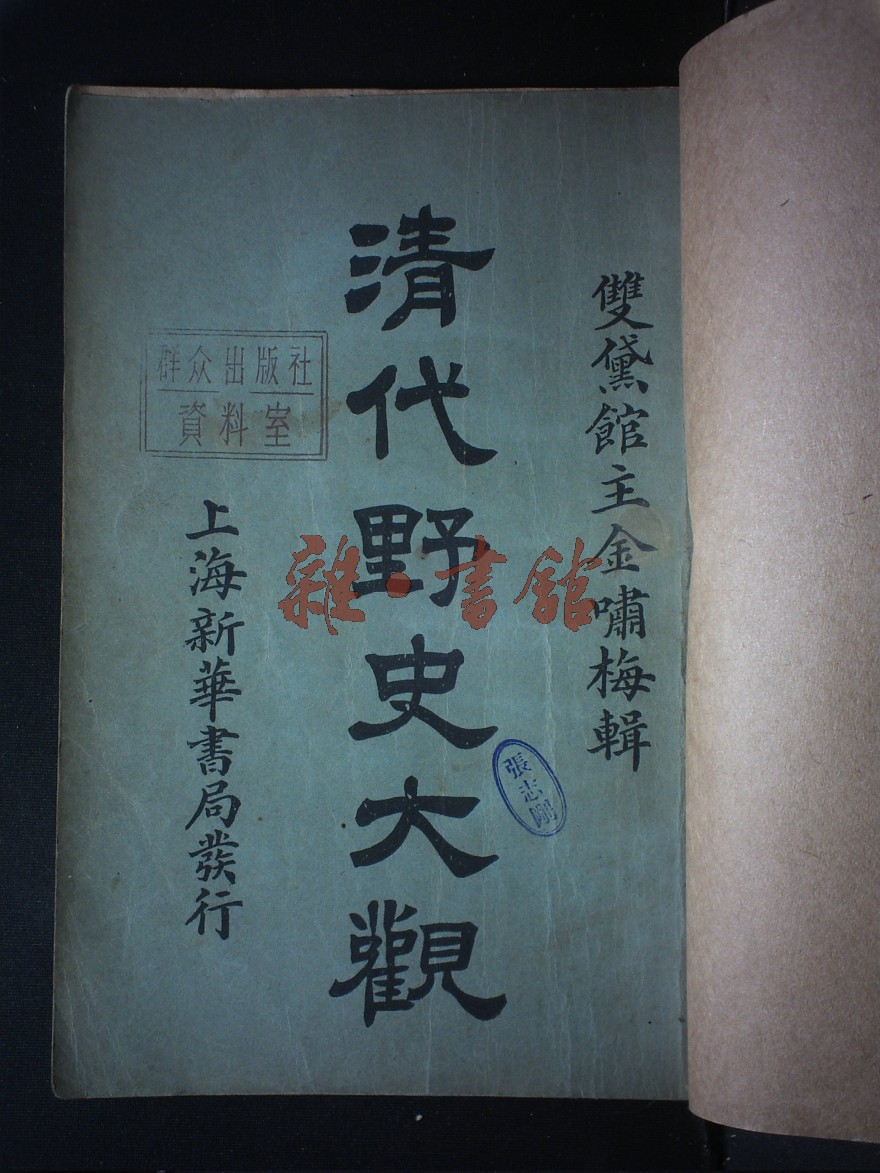 雙黛館主金嘯梅輯
清代野史大觀
上海新華書局發行
群众出版社
資料室
張志剛
雜·書館